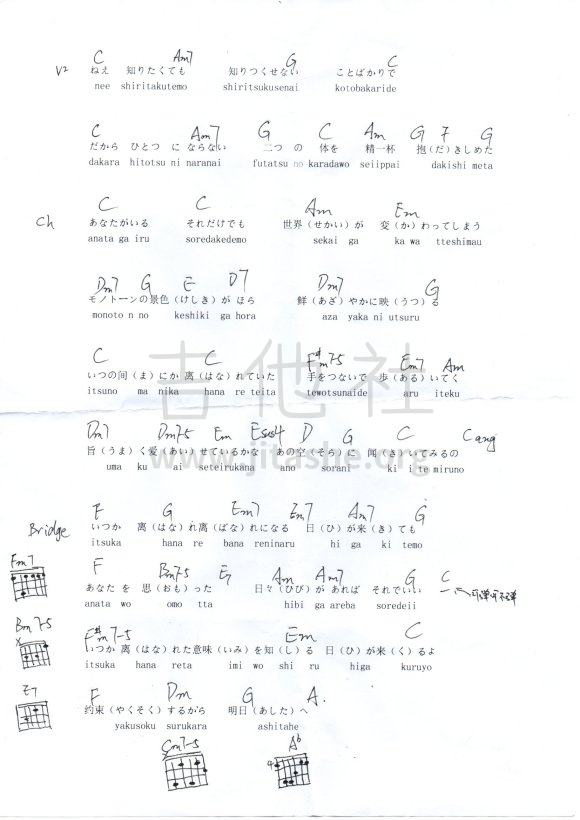 C Am7 G C
V2 ねえ 知りたくても 知りつくせない ことばかりで
nee shiritakutemo shiritsukusenai kotobakaride
C Am7 G C Am G F G
だから ひとつ に ならない 二つ の 体を 精一杯 抱(だ)きしめた
dakara hitotsu ni naranai futatsu no karadawo seiippai dakishi meta
C C Am Em
Ch あなたがいる それだけでも 世界(せかい)が 変(か)わってしまう
anata ga iru soredakedemo sekai ga ka wa tteshimau
Dm7 G E D7 Dm7 G
モノトーンの景色(けしき)が ほら 鮮(あざ)やかに映(うつ)る
monoto n no keshiki ga hora aza yaka ni utsuru
C C F#m7-5 Em7 Am
いつの間(ま)にか 离(はな)れていた 手をつないで 歩(ある)いてく
itsuno ma nika hana re teita tewotsunaide aru iteku
吉他社
www.jitashe.org
Dm7 Dm7-5 Em Esus4 D G C Cang
旨(うま)く 爱(あい)せているかな あの空(そら)に 闻(き)いてみるの
uma ku ai seteirukana ano sorani ki i te miruno
F G Em7 Em7 Am7 G
Bridge いつか 离(はな)れ离(ばな)れになる 日(ひ)が来(き)ても
itsuka hana re bana reninaru hi ga ki temo
Fm7
F Bm7-5 E7 Am Am7 G C
あなた を 思(おも)った 日々(ひび)が あれば それでいい
anata wo omo tta hibi ga areba soredeii
Bm7-5
x
F#m7-5 Em C
いつか 离(はな)れた意味(いみ)を知(し)る 日(ひ)が来(く)るよ
itsuka hana reta imi wo shi ru higa kuruyo
E7
F Dm G A.
约束(やくそく)するから 明日(あした)へ
yakusoku surukara ashitahe
Cm7-5 Ab
4